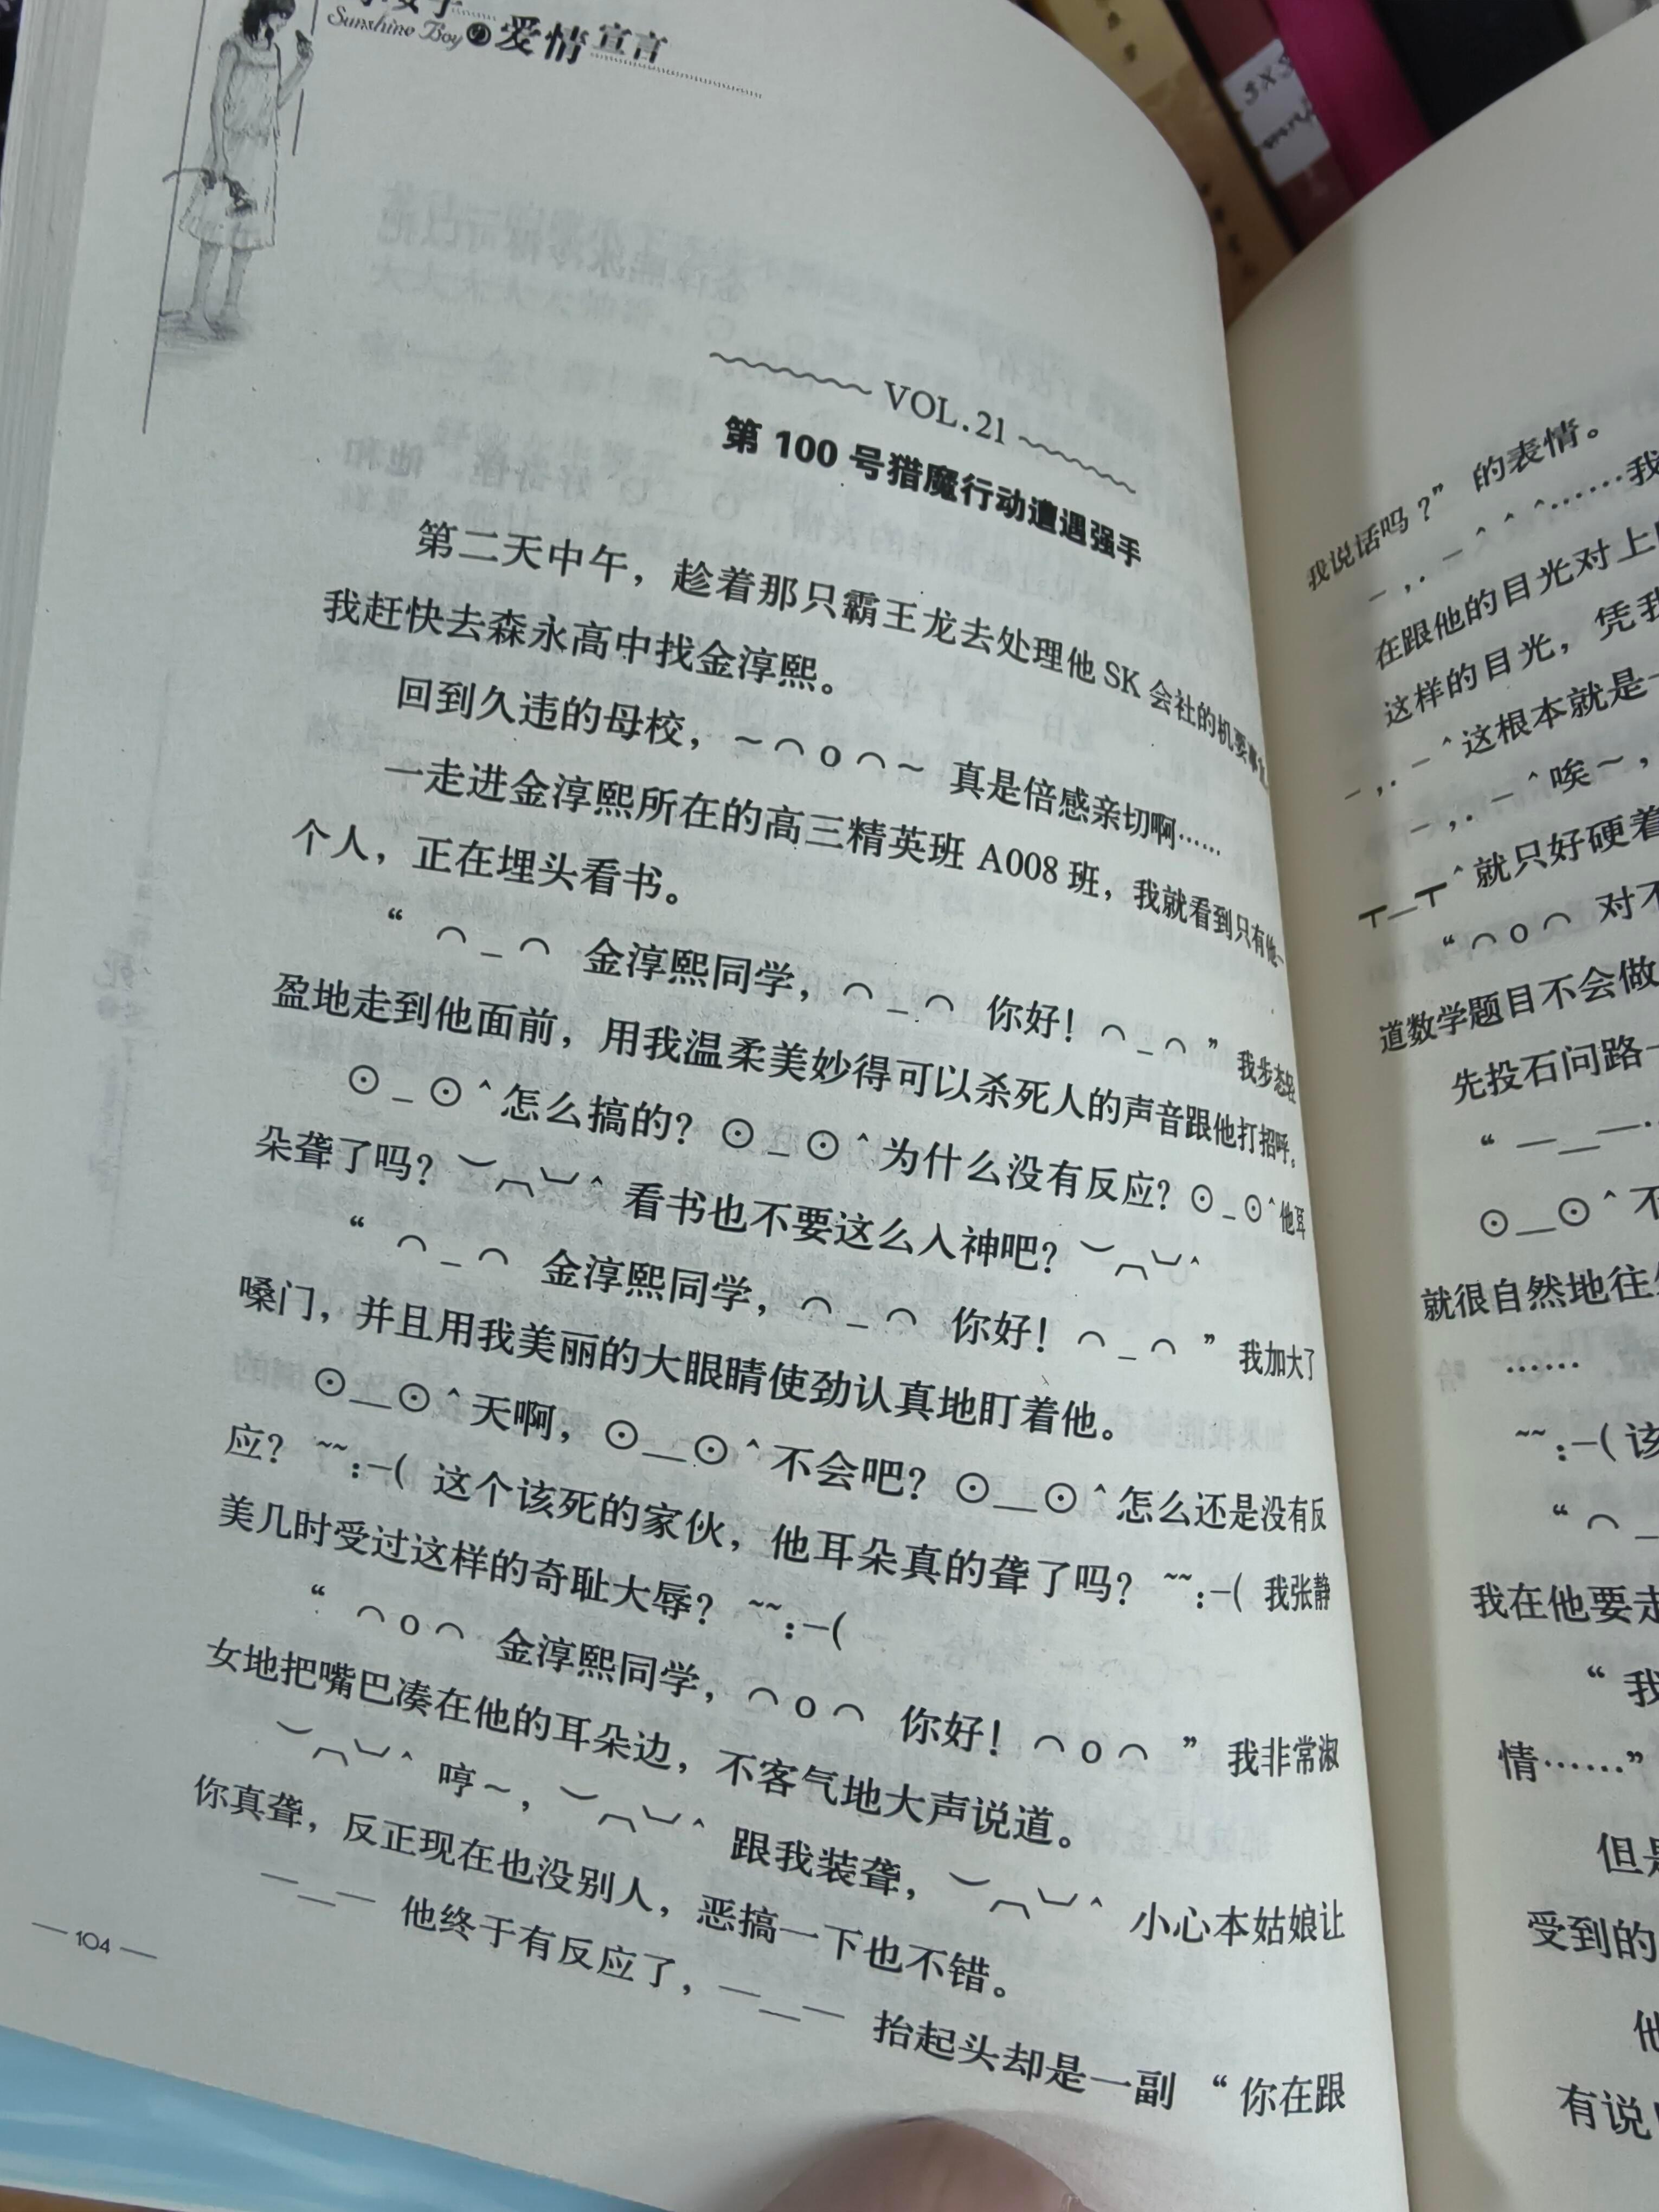 Sunshine Boy の爱情宣言
VOL.21
第 100 号猎魔行动遭遇强手
第二天中午，趁着那只霸王龙去处理他 SK 会社的机要事
我赶快去森永高中找金淳熙。
回到久违的母校，～⌒o⌒～ 真是倍感亲切啊……
一走进金淳熙所在的高三精英班 A008 班，我就看到只有他一
个人，正在埋头看书。
“ ⌒_⌒ 金淳熙同学，⌒_⌒ 你好！⌒_⌒ ” 我步态轻
盈地走到他面前，用我温柔美妙得可以杀死人的声音跟他打招呼。
⊙_⊙^怎么搞的？⊙_⊙^为什么没有反应？⊙_⊙^他耳
朵聋了吗？︶︹︺^看书也不要这么入神吧？︶︹︺^
“ ⌒_⌒ 金淳熙同学，⌒_⌒ 你好！⌒_⌒ ” 我加大了
嗓门，并且用我美丽的大眼睛使劲认真地盯着他。
⊙__⊙^天啊，⊙__⊙^不会吧？⊙__⊙^怎么还是没有反
应？ ~~:-( 这个该死的家伙，他耳朵真的聋了吗？ ~~:-( 我张静
美几时受过这样的奇耻大辱？ ~~:-(
“ ⌒o⌒ 金淳熙同学，⌒o⌒ 你好！⌒o⌒ ” 我非常淑
女地把嘴巴凑在他的耳朵边，不客气地大声说道。
︶︹︺^ 哼～，︶︹︺^ 跟我装聋，︶︹︺^ 小心本姑娘让
你真聋，反正现在也没别人，恶搞一下也不错。
—__— 他终于有反应了，—__— 抬起头却是一副 “你在跟
— 104 —
我说话吗？” 的表情。
–,.–^^^……我
在跟他的目光对上
这样的目光，凭我
–,.–^这根本就是
–,.–^唉～，
┬_┬^就只好硬着
“⌒o⌒ 对不
道数学题目不会做
先投石问路
“ —__—
⊙__⊙^不
就很自然地往
……
~~:-( 该
“ ⌒_
我在他要走
“我
情……”
但是
受到的
他
有说